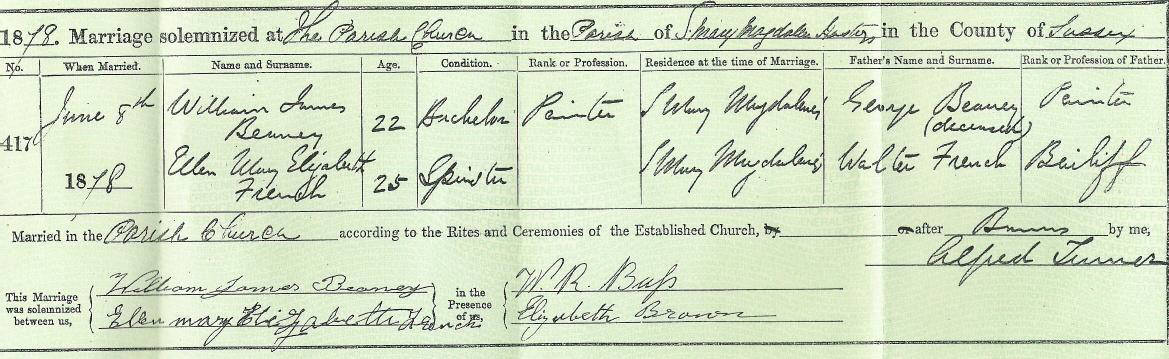 1878. Marriage solemnized at The Parish Church in the Parish of St Mary Magdalen Hastings in the County of Sussex
No. When Married. Name and Surname. Age. Condition. Rank or Profession. Residence at the time of Marriage. Father's Name and Surname. Rank or Profession of Father.
417 June 8th 1878
William James Beaney 22 Bachelor Painter St Mary Magdalene's George Beaney (deceased) Painter
Ellen Mary Elizabeth French 25 Spinster St Mary Magdalene's Walter French Bailiff
Married in the Parish Church according to the Rites and Ceremonies of the Established Church, by or after Banns by me,
Alfred Turner
This Marriage was solemnized between us,
William James Beaney
Ellen mary Elizabeth French
in the Presence of us,
W. R. Bass
Elizabeth Brown